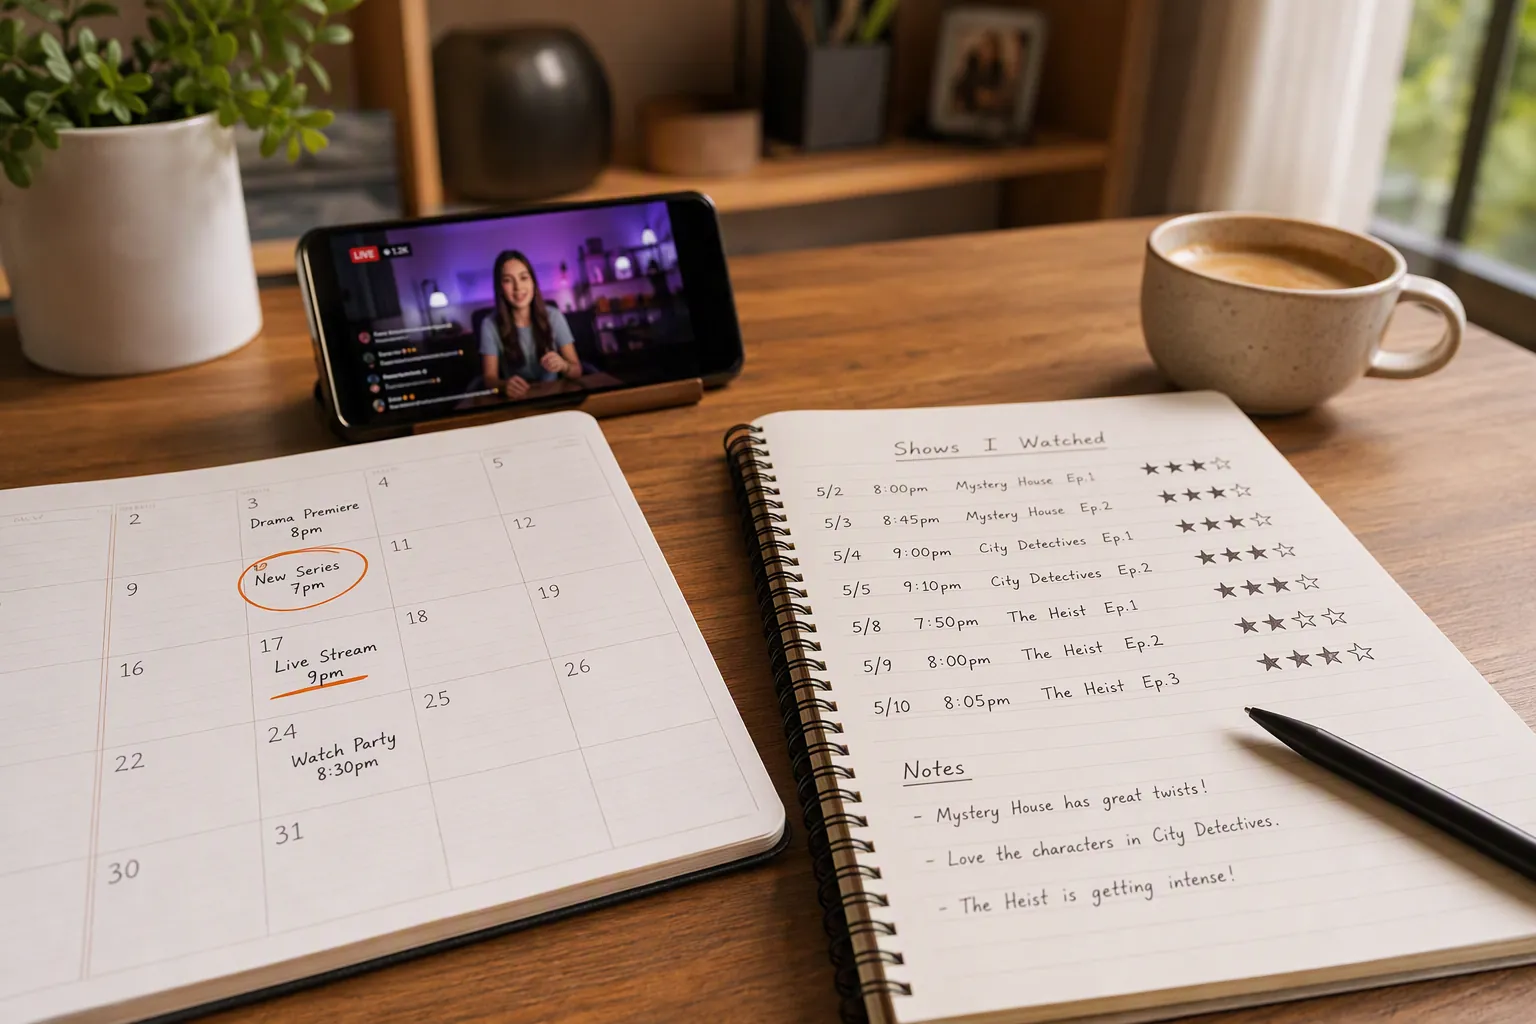 LIVE 1.2K
2
3
Drama Premiere
8pm
4
5
9
10
New Series
7pm
11
12
16
17
Live Stream
9pm
18
19
22
24
Watch Party
8:30pm
25
26
30
31
Shows I Watched
5/2 8:00pm Mystery House Ep.1 ★★★☆
5/3 8:45pm Mystery House Ep.2 ★★★☆
5/4 9:00pm City Detectives Ep.1 ★★★☆
5/5 9:10pm City Detectives Ep.2 ★★★☆
5/8 7:50pm The Heist Ep.1 ★★★☆
5/9 8:00pm The Heist Ep.2 ★★☆☆
5/10 8:05pm The Heist Ep.3 ★★★☆
Notes
- Mystery House has great twists!
- Love the characters in City Detectives.
- The Heist is getting intense!